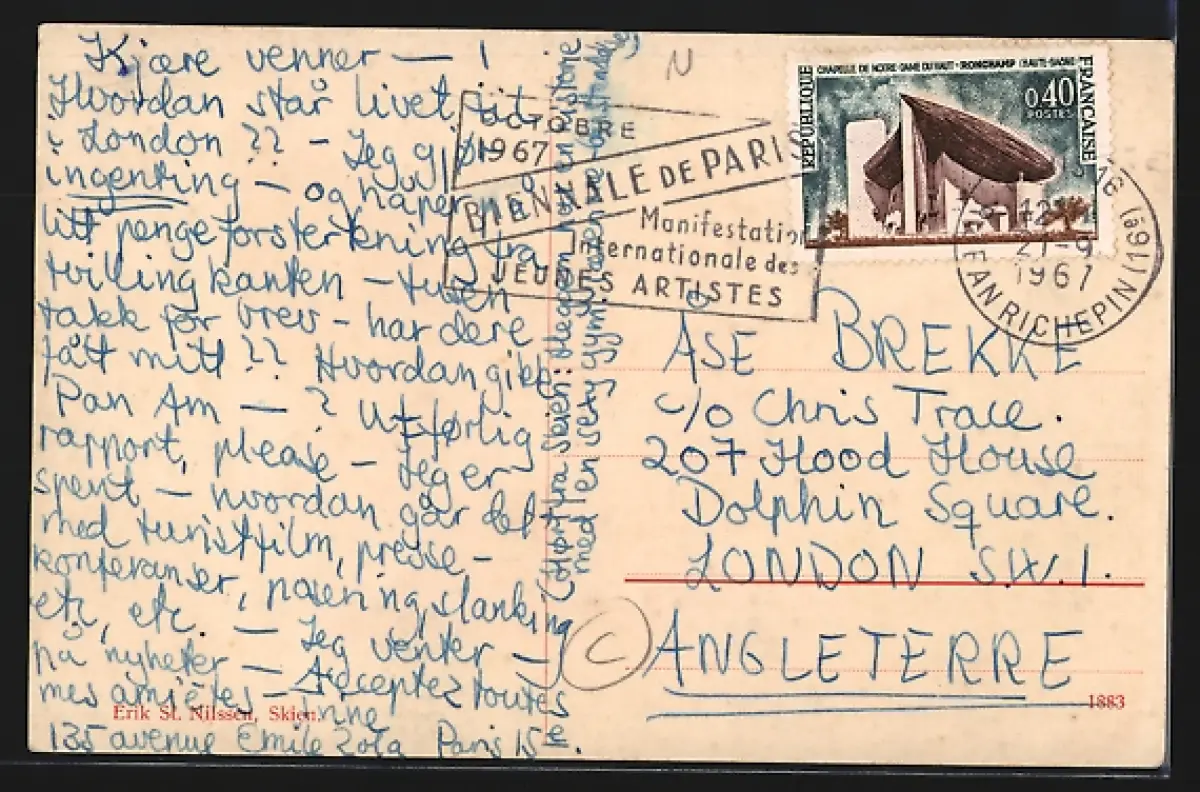 Kjære venner — !
Hvordan står livet sit
i London ?? – Jeg gjør
ingenting — og håper på
litt pengeforsterkning fra
tvillingkanten – tusen
takk for brev – har dere
fått mitt ?? Hvordan gikk
Pan Am — ? Utførlig
rapport, please – Jeg er
spent — hvordan går det
med turistfilm, presse-
konferanser, posering, slanking
etc, etc. — Jeg venter —
på nyheter — Acceptez toutes
mes amitiés —
135 avenue Emile Zola Paris 15e.
(Hørt fra Skien: Hegen har en historie
med en sexy gymlærer
N
OCTOBRE
1967
BIENNALE DE PARIS
Manifestation
Internationale des
JEUNES ARTISTES
RÉPUBLIQUE FRANÇAISE
CHAPELLE DE NOTRE-DAME DU HAUT - RONCHAMP (HAUTE-SAÔNE)
0,40
POSTES
16
12
21-9
1967
JEAN RICHEPIN (16e)
ÅSE BREKKE
c/o Chris Trace.
207 Hood House
Dolphin Square.
LONDON S.W.1.
C
ANGLETERRE
Erik St. Nilssen, Skien.
1883